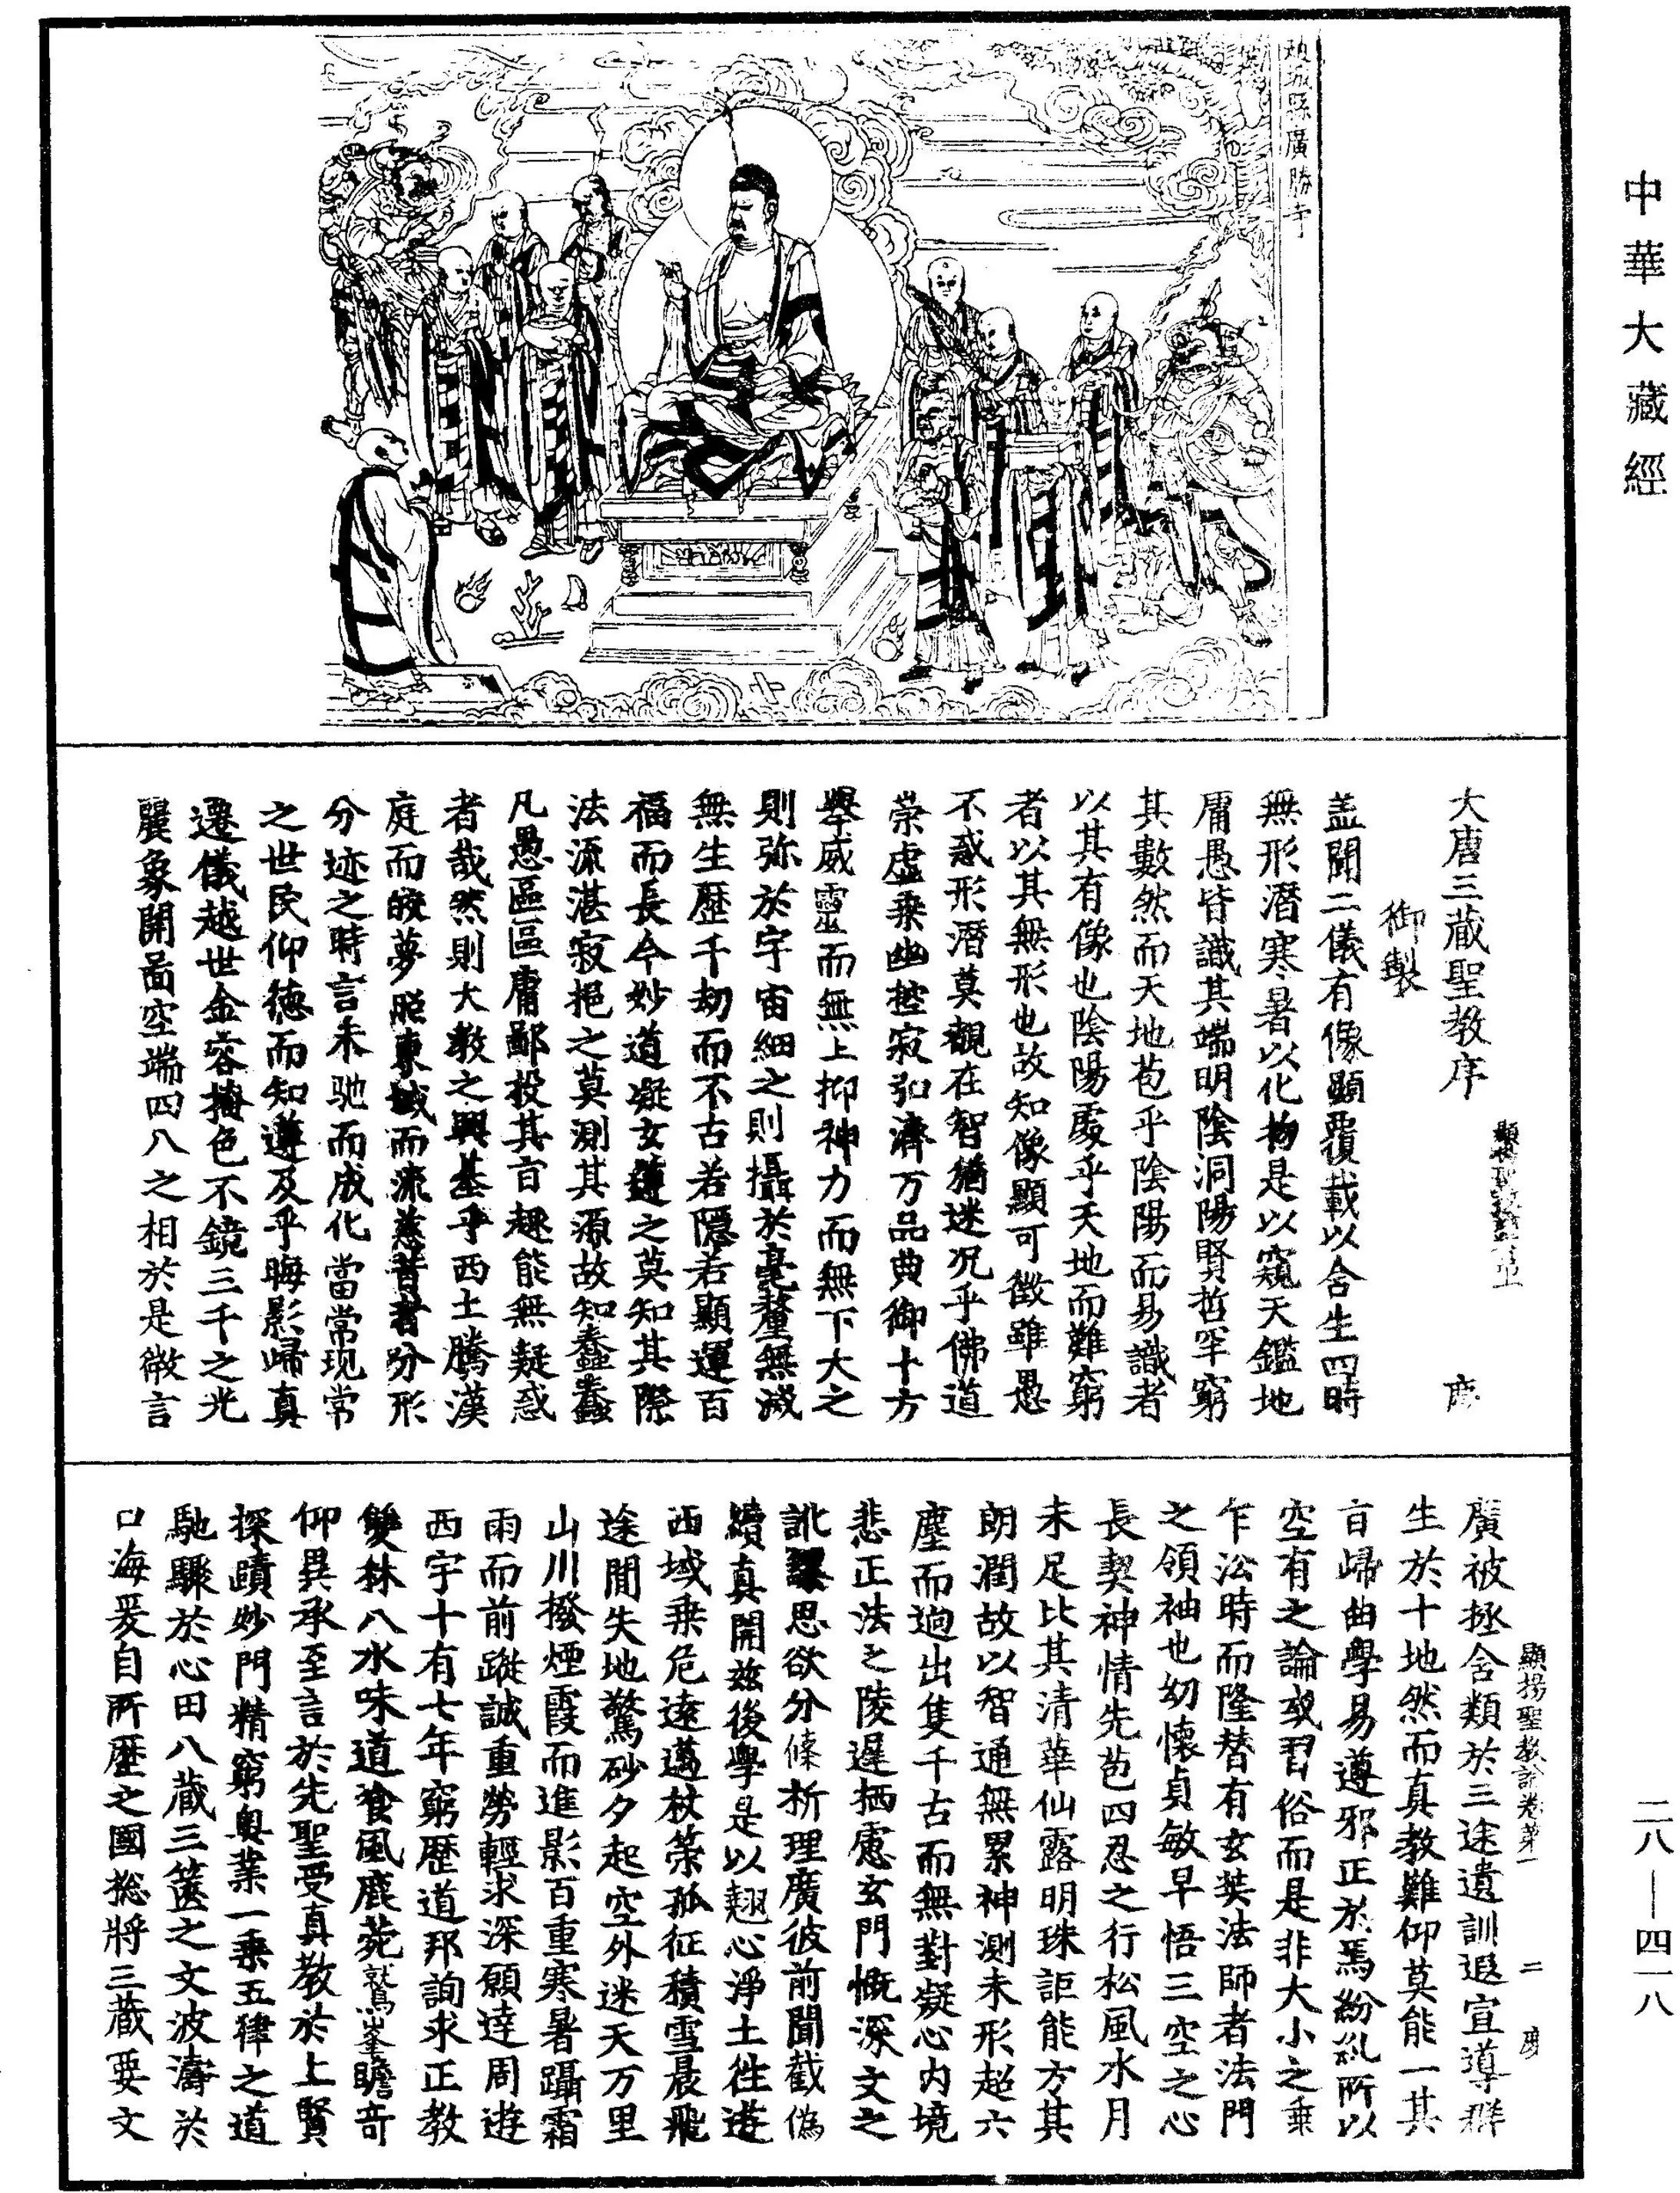 中華大藏經
趙城縣廣勝寺
大唐三藏聖教序
御製
盖聞二儀有像顯覆載以含生四時
無形潛寒暑以化物是以窺天鑑地
庸愚皆識其端明陰洞陽賢哲罕窮
其數然而天地苞乎陰陽而易識者
以其有像也陰陽處乎天地而難窮
者以其無形也故知像顯可徵雖愚
不惑形潛莫覩在智猶迷况乎佛道
崇虛乗幽控寂弘濟万品典御十方
舉威靈而無上抑神力而無下大之
則弥於宇宙細之則攝於毫釐無滅
無生歷千劫而不古若隱若顯運百
福而長今妙道凝玄遵之莫知其際
法流湛寂挹之莫測其源故知蠢蠢
凡愚區區庸鄙投其旨趣能無疑惑
者哉然則大教之興基乎西土騰漢
庭而皎夢照東域而流慈昔者分形
分迹之時言未馳而成化當常現常
之世民仰德而知遵及乎晦影歸真
遷儀越世金容掩色不鏡三千之光
麗象開啚空端四八之相於是微言
廣被拯含類於三途遺訓遐宣導群
生於十地然而真教難仰莫能一其
旨歸曲學易遵邪正於焉紛糺所以
空有之論或習俗而是非大小之乗
乍沿時而隆替有玄奘法師者法門
之領袖也幼懷貞敏早悟三空之心
長契神情先苞四忍之行松風水月
未足比其清華仙露明珠詎能方其
朗潤故以智通無累神測未形超六
塵而迥出隻千古而無對凝心内境
悲正法之陵遲栖慮玄門慨深文之
訛謬思欲分條析理廣彼前聞截偽
續真開兹後學是以翹心淨土往遊
西域乗危遠邁杖策孤征積雪晨飛
途閒失地驚砂夕起空外迷天万里
山川撥煙霞而進影百重寒暑躡霜
雨而前蹤誠重勞輕求深願達周遊
西宇十有七年窮歷道邦詢求正教
雙林八水味道飡風鹿菀鷲峯瞻奇
仰異承至言於先聖受真教於上賢
探賾妙門精窮奧業一乗五律之道
馳驟於心田八藏三篋之文波濤於
口海爰自所歷之國捴將三藏要文
顯揚聖教論卷第一
二
二八—四一八